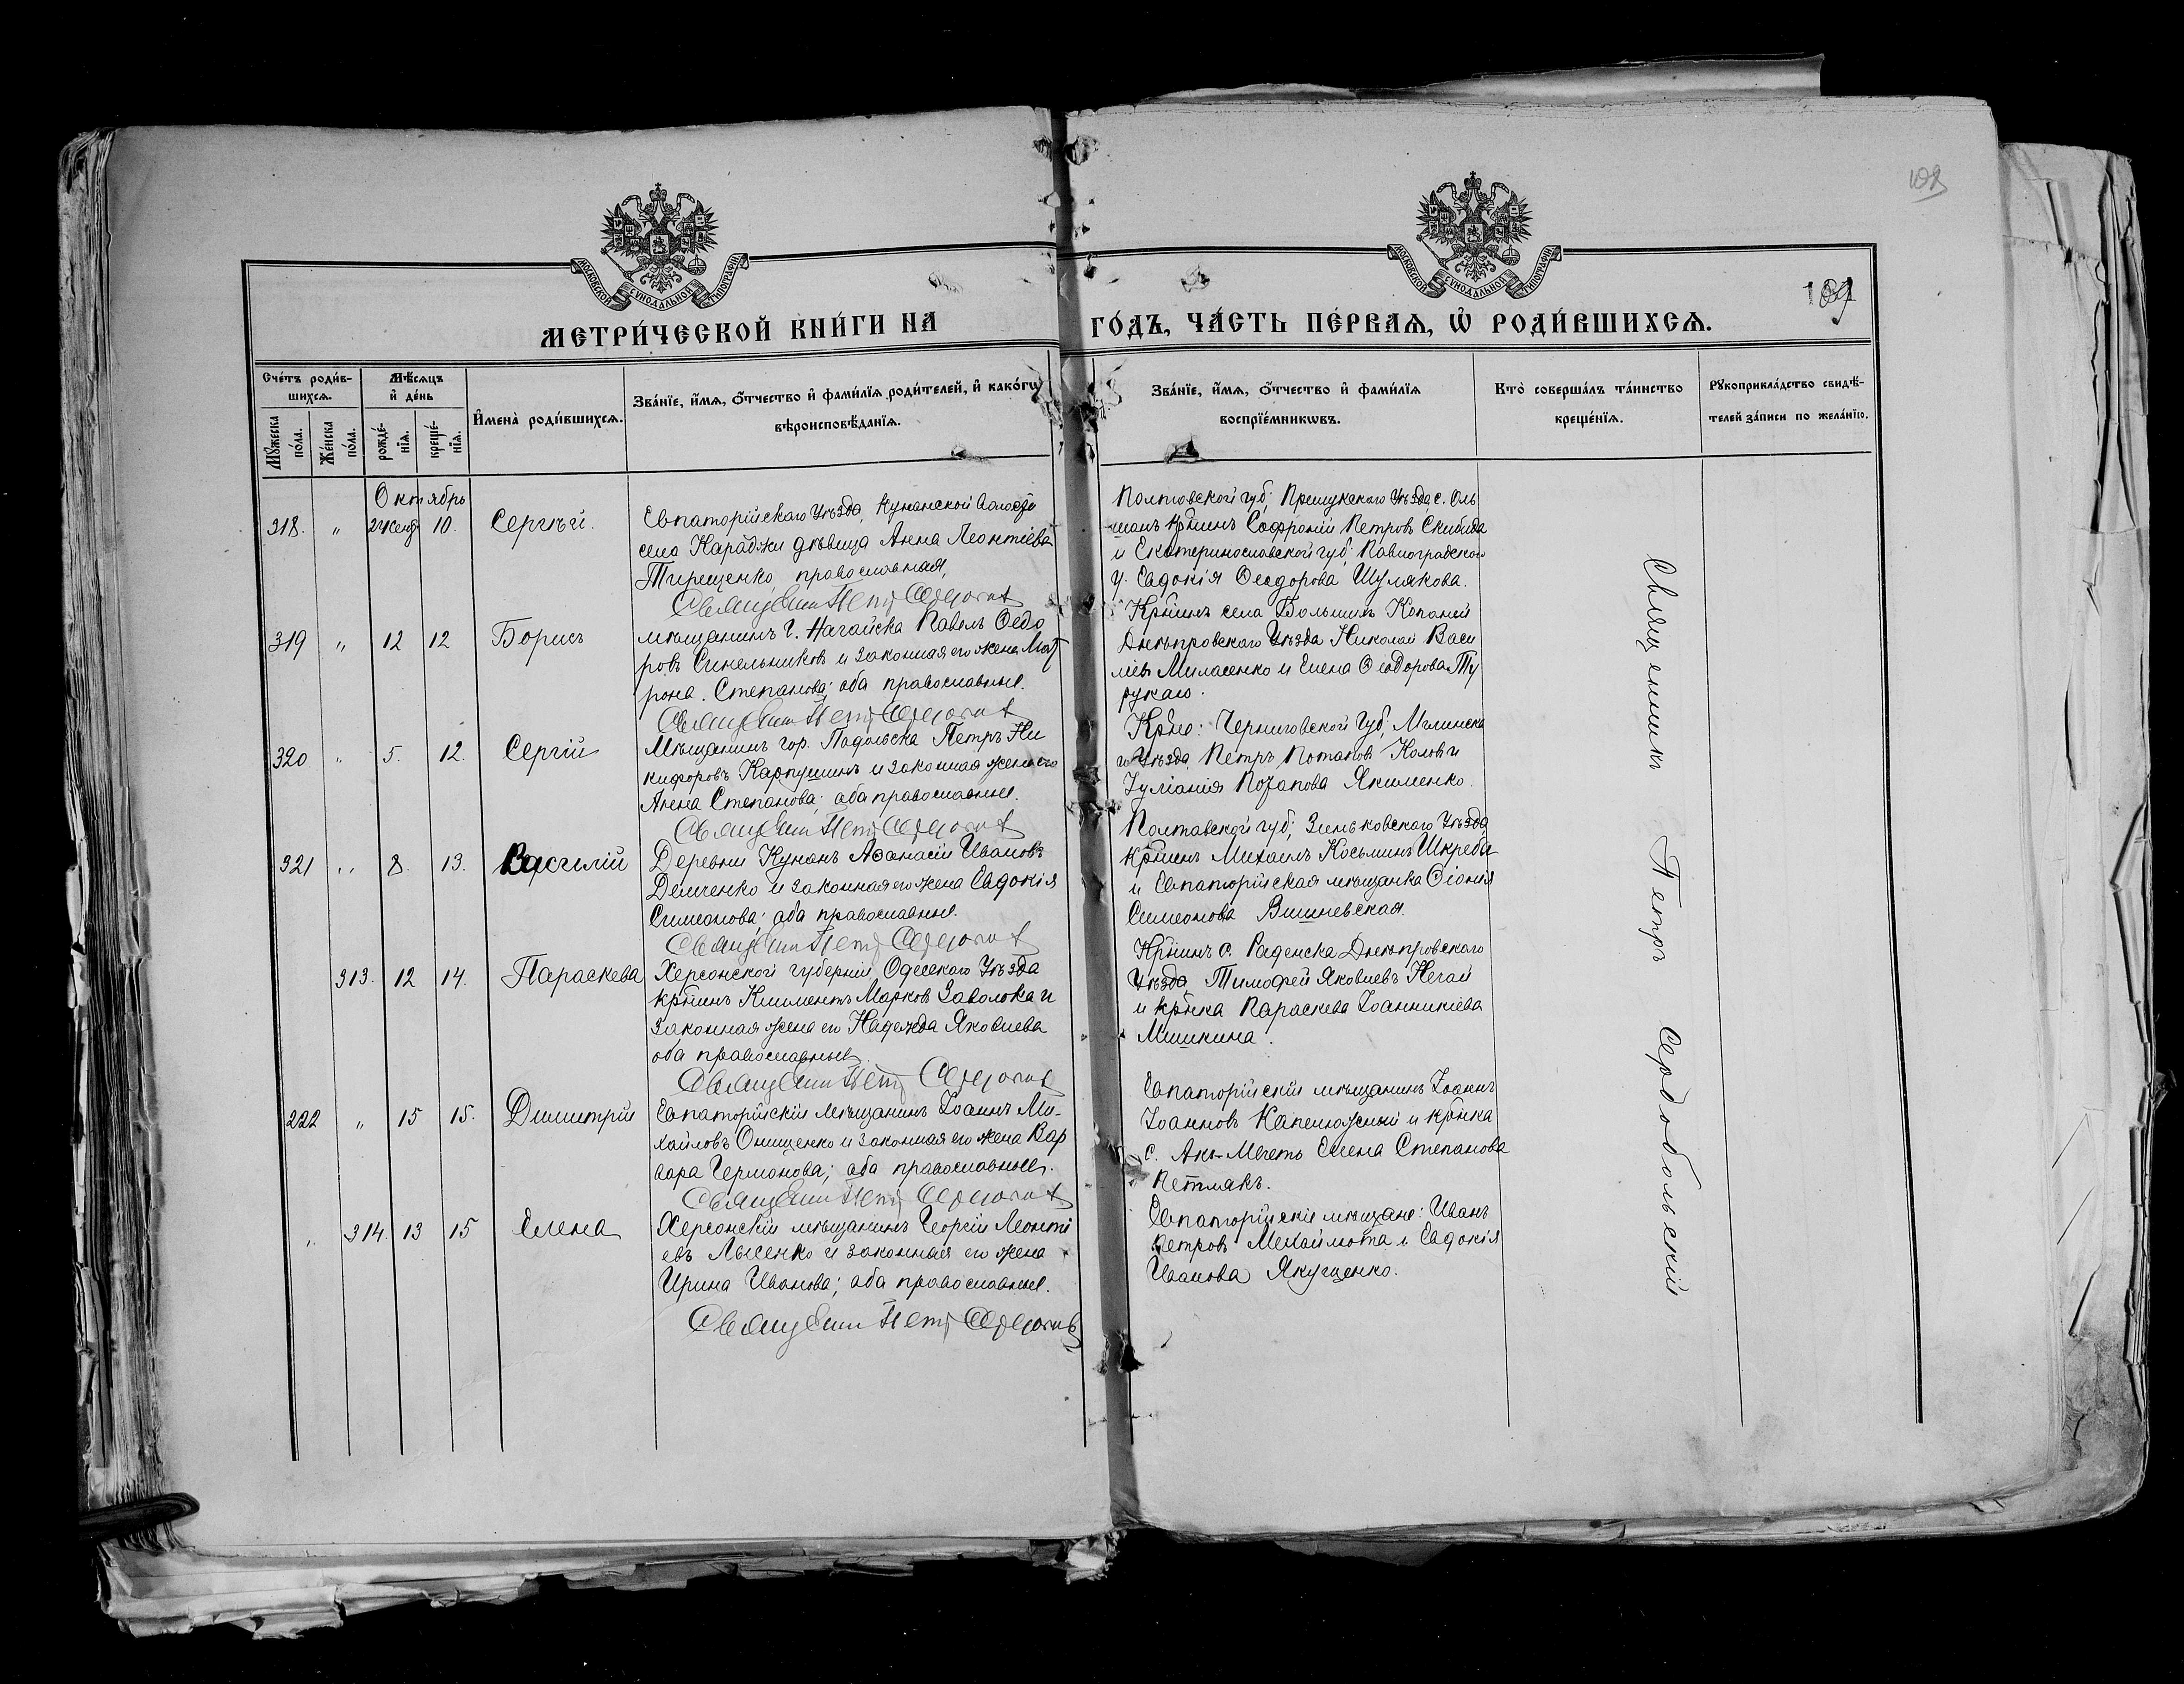 МОСКОВСКОЙ СѴНОДАЛЬНОЙ ТИПОГРАФІИ
МОСКОВСКОЙ СѴНОДАЛЬНОЙ ТИПОГРАФІИ
МЕТРИ́ЧЕСКОЙ КНИ́ГИ НА
ГО́ДЪ, ЧА́СТЬ ПЕ́РВАѦ, Ѡ҆ РОДИ́ВШИХСѦ.
Сче́тъ роди́в-
шихсѧ.
Мꙋ́жеска
по́ла.
Же́нска
по́ла.
Мѣ́сѧцъ
и҆ де́нь
рожде́-
нїѧ.
креще́-
нїѧ.
И҆мена̀ роди́вшихсѧ.
Зва́нїе, и҆́мѧ, ѻ҆́тчество и҆ фами́лїѧ роди́телей, и҆ како́гѡ
вѣроисповѣ́данїѧ.
Зва́нїе, и҆́мѧ, ѻ҆́тчество и҆ фами́лїѧ
воспрїе́мникѡвъ.
Кто̀ соверша́лъ та́инство
креще́нїѧ.
Рꙋкоприкла́дство свидѣ́-
телей за́писи по жела́нїю.
Октябрь
318. " 10. Сергѣй.
Евпаторійскаго Уѣзда, Кунанской волости
село Караджи дѣвица Анна Леонтіева
Тирещенко, православная,
Полтавской губ; Прилукскаго Уѣзда с. Оль
шанъ крнинъ Софроній Петровъ Скибида
и Екатеринославской губ; Павлоградскаго
у. Евдокія Ѳеодорова Шулякова.
319 " 12 12 Борисъ
мѣщанинъ г. Нагайска Павелъ Ѳедо
ровъ Синельниковъ и законная его жена Мат
рона Степанова; оба православные.
Крнинъ села Большихъ Копаней
Днѣпровскаго Уѣзда Николай Васи
льевъ Миласенко и Елена Ѳеодорова Ту
рукало.
320 " 5. 12. Сергій
Мѣщанинъ гор. Подольска Петръ Ни
кифоровъ Карпушинъ и законная жена его
Анна Степанова; оба православные.
Крне: Черниговской губ; Мглинска
го Уѣзда Петръ Потаповъ и
Іуліанія Потапова Якименко.
321 " 8. 13. Василій
Деревни Кунанъ Аѳанасій Ивановъ
Демченко и законная его жена Евдокія
Симеонова; оба православные.
Полтавской губ; Зеньковскаго Уѣзда
крнинъ Михаилъ Косьминъ Шкреба
и Евпаторійская мѣщанка
Симеонова Вишневская.
313. 12 14. Параскева
Херсонской губерніи, Одесскаго Уѣзда
крнинъ Климентъ Марковъ Заволока и
законная жена его Надежда Яковлева
оба православные.
Крнинъ с. Раденска Днѣпровскаго
Уѣзда, Тимофей Яковлевъ Негай
и крнка Параскева Іоанникіева
Мишкина.
222 " 15 15. Димитрій
Евпаторійскій мѣщанинъ Іоаннъ Ми-
хайловъ Онищенко и законная его жена Вар
вара Германова; оба православные.
Евпаторійскій мѣщанинъ Іоаннъ
Іоанновъ Капелюжный и крнка
с. Акъ-Мечеть Елена Степанова
Петлякъ.
" 314. 13 15 Елена
Херсонскій мѣщанинъ Георгій Леонті
евъ Лысенко и законная его жена
Ирина Иванова; оба православные.
Евпаторійскіе мѣщане: Иванъ
Петровъ и Евдокія
Иванова Якущенко.
Священникъ Петръ Сердобольскій